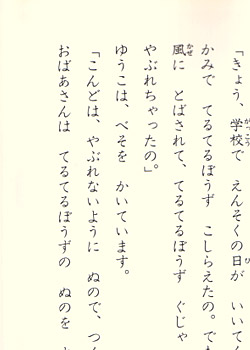 「きょう、学校で えんそくの日が いいてん
かみで てるてるぼうず こしらえたの。でも
風に とばされて、てるてるぼうず ぐじゃ
やぶれちゃったの」。
ゆうこは、べそを かいています。
「こんどは、やぶれないように ぬので、つく
おばあさんは てるてるぼうずの ぬのを